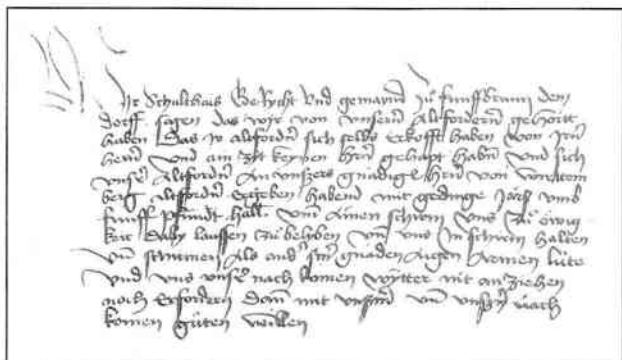 Wir Schulthais Gericht und gemaynd zů funffbrunn dem
dorff sagen das wir von unsern altfordern gehört
haben das ir altfordern sich selbs erkofft haben von irem
herrn und ain zyt keynen hern gehapt habn und sich
unser altfordern an unsers gnedigen hern von
berg altfordern ergeben habend mit gedinge järlich umb
funff pfundt hall umb ainen schirm uns zů ewig
keit daby laussen zů beliben und uns in schirm halten
und schirmen als ander siner gnaden aigen armen lüte
und uns unser nach komen wytter nit an ziehen
noch erfordern dann mit unserm und unser nach
komen gůten willen